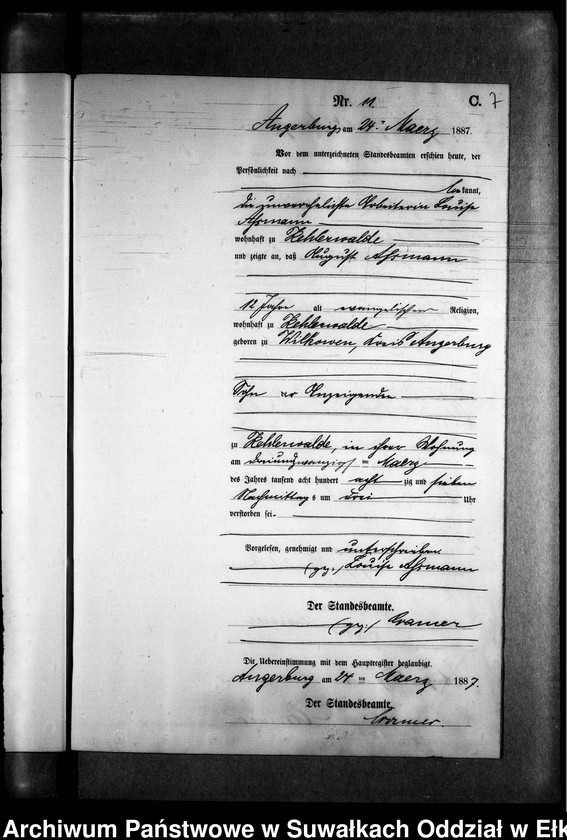 Nr. 11. C. 7
Angerburg am 24ten Maerz 1887.
Vor dem unterzeichneten Standesbeamten erschien heute, der
Persönlichkeit nach
bekannt,
die unverehelichte Arbeiterin Louise
Assmann
wohnhaft zu Kehlerwalde
und zeigte an, daß August Assmann
12 Jahre alt evangelischer Religion,
wohnhaft zu Kehlerwalde
geboren zu Wilkowen, Kreis Angerburg
Sohn der Anzeigenden
zu Kehlerwalde, in ihrer Wohnung
am dreiundzwanzigsten Maerz
des Jahres tausend acht hundert acht zig und sieben
Nachmittags um drei Uhr
verstorben sei.
Vorgelesen, genehmigt und unterschrieben
(gz.) Louise Assmann
Der Standesbeamte.
(gz.) Cramer
Die Uebereinstimmung mit dem Hauptregister beglaubigt.
Angerburg am 24ten Maerz 1887.
Der Standesbeamte.
Cramer.
Archiwum Państwowe w Suwałkach Oddział w Ełk